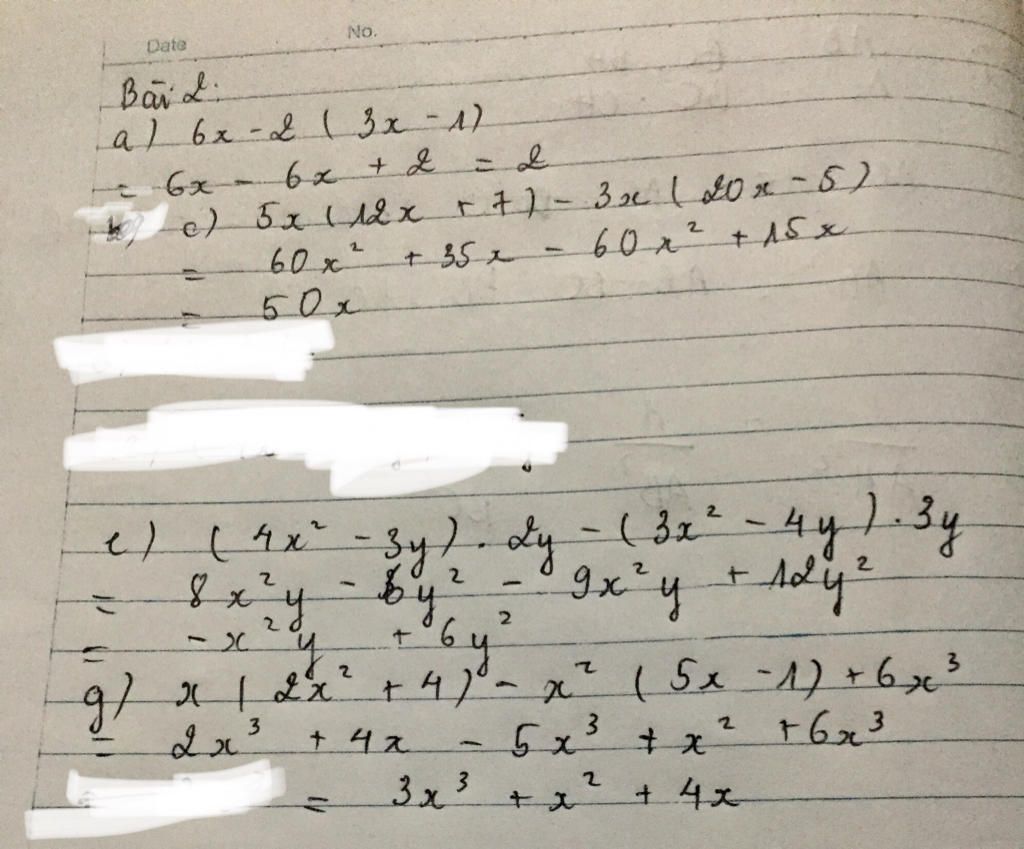 Date No.
Bài 2:
a) 6x - 2 ( 3x - 1)
= 6x - 6x + 2 = 2
c) 5x (12x + 7) - 3x ( 20x - 5)
= 60x² + 35x - 60x² + 15x
= 50x
e) ( 4x² - 3y) . 2y - ( 3x² - 4y ) . 3y
= 8x²y - 6y² - 9x²y + 12y²
= -x²y + 6y²
g) x ( 2x² + 4) - x² ( 5x - 1) + 6x³
= 2x³ + 4x - 5x³ + x² + 6x³
= 3x³ + x² + 4x